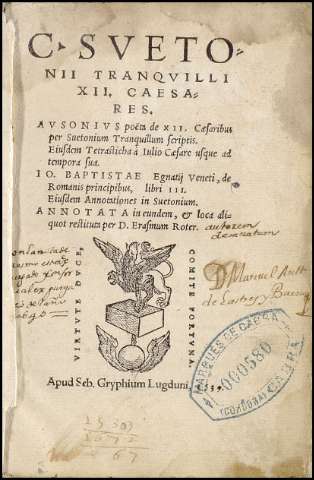 C. SVETO-
NII TRANQVILLI
XII. CAESA-
RES.
AVSONIVS poëta de XII. Cæsaribus
per Suetonium Tranquillum scriptis.
Eiusdem Tetrasticha à Iulio Cæsare usque ad
tempora sua.
IO. BAPTISTAE Egnatij Veneti, de
Romanis principibus, libri III.
Eiusdem Annotationes in Suetonium.
ANNOTATA in eundem, & loca ali-
quot restituta per D. Erasmum Roter.
autorem
damnatum
VIRTVTE DVCE,
COMITE FORTVNA.
D. Manuel
de
MARQUES DE CABRA
000580
(CORDOBA) CABRA
Apud Seb. Gryphium Lugduni,